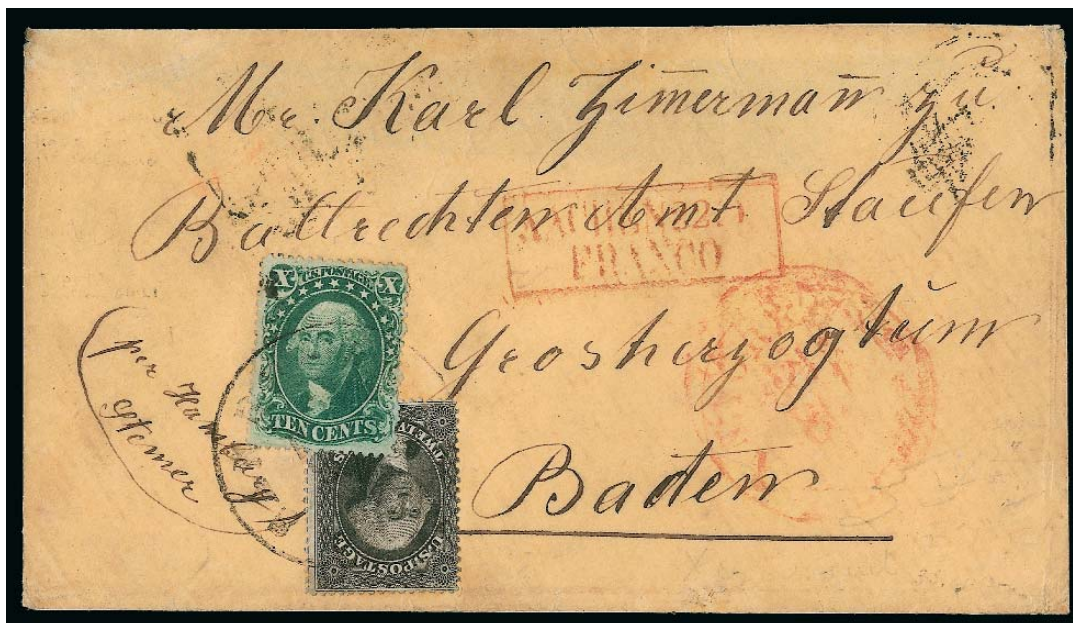 Mr. Karl Zim̄erman̄ zu
Ballrechten Amt Staufen
Grosherzogtum
Baden
per Hamburg
Stemer
FRANCO
X U.S. POSTAGE X
TEN CENTS
U.S. POSTAGE